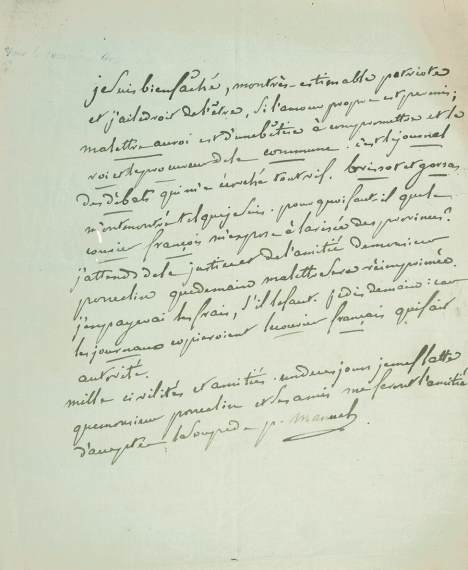 je suis bien faché, mon très estimable patriote
et j'ai le droit de l'être, si l'amour propre est permis;
ma lettre au roi est d'une bêtise à compromettre et le
roi et le procureur de la commune. c'est le journal
des débats qui m'a écorché tout vif. brissot et gorsas
m'ont montré tel que je suis. pourquoi faut il que le
courier françois m'expose à la risée des provinces?
j'attends de la justice et de l'amitié de monsieur
poncelin que demain ma lettre sera réimprimée.
j'en payerai les frais, s'il le faut. je dis demain: car
les journaux copieroient le courier français qui fait
autorité.
mille civilités et amitiés. un de ces jours je me flatte
que monsieur poncelin et ses amis me feront l'amitié
d'accepter la soupe de p. manuel